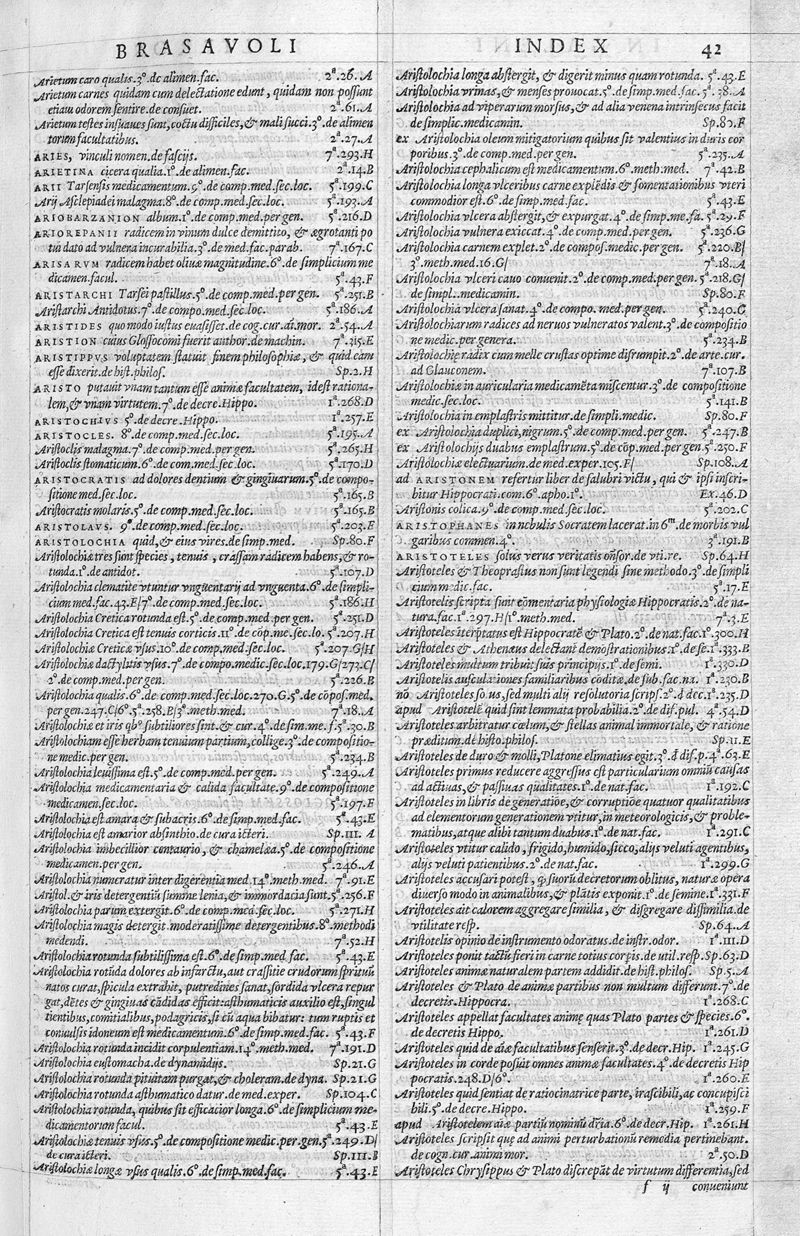 BRASAVOLI
Arietum caro qualis. 3°. de alimen. fac. 2ª. 26. A
Arietum carnes quidam cum delectatione edunt, quidam non possunt
etiam odorem sentire. de consuet. 2ª. 61. A
Arietum testes insuaves sunt, coctu difficiles, & mali succi. 3°. de alimen
torum facultatibus. 2ª. 27. A
ARIES, vinculi nomen. de fascijs. 7ª. 293. H
ARIETINA cicera qualia. 1°. de alimen. fac. 2ª. 14. B
ARII Tarsensis medicamentum. 9°. de comp. med. sec. loc. 5ª. 199. C
Arij Asclepiadei malagma. 8°. de comp. med. sec. loc. 5ª. 193. A
ARIOBARZANION album. 1°. de comp. med. per gen. 5ª. 216. D
ARIOREPANII radicem in vinum dulce demittito, & ægrotanti po
tui dato ad vulnera incurabilia. 3°. de med. fac. parab. 7ª. 167. C
ARISARVM radicem habet olivæ magnitudine. 6°. de simplicium me
dicamen. facul. 5ª. 43. F
ARISTARCHI Tarsei pastillus. 5°. de comp. med. per gen. 5ª. 251. B
Aristarchi Antidotus. 7°. de compo. med. sec. loc. 5ª. 186. A
ARISTIDES quo modo iustus euasisset. de cog. cur. ai. mor. 2ª. 54. A
ARISTION cuius Glossocomi fuerit author. de machin. 7ª. 315. E
ARISTIPPVS voluptatem statuit finem philosophiæ, & quid eam
esse dixerit. de hist. philos. Sp. 2. H
ARISTO putauit vnam tantum esse animæ facultatem, idest rationa-
lem, & vnam virtutem. 7°. de decre. Hippo. 1ª. 268. D
ARISTOCHIVS 5°. de decre. Hippo. 1ª. 257. E
ARISTOCLES. 8°. de comp. med. sec. loc. 5ª. 195. A
Aristoclis malagma. 7°. de comp. med. per gen. 5ª. 265. H
Aristoclis stomaticum. 6°. de com. med. sec. loc. 5ª. 170. D
ARISTOCRATIS ad dolores dentium & gingiuarum. 5°. de compo-
sitione med. sec. loc. 5ª. 165. B
Aristocratis molaris. 5°. de comp. med. sec. loc. 5ª. 165. B
ARISTOLAVS. 9°. de comp. med. sec. loc. 5ª. 203. F
ARISTOLOCHIA quid, & eius vires. de simp. med. Sp. 80. F
Aristolochiæ tres sunt species, tenuis, crassam radicem habens, & ro-
tunda. 1°. de antidot. 5ª. 107. D
Aristolochia clematite vtuntur vnguentarij ad vnguenta. 6°. de simpli-
cium med. fac. 43. E/ 7°. de comp. med. sec. loc. 5ª. 186. H
Aristolochia Cretica rotunda est. 5°. de comp. med. per gen. 5ª. 251. D
Aristolochia Cretica est tenuis corticis. 11°. de cōp. me. sec. lo. 5ª. 207. H
Aristolochiæ Creticæ vsus. 10°. de comp. med. sec. loc. 5ª. 207. G/H
Aristolochiæ dactylitis vsus. 7°. de compo. medic. sec. loc. 179. G/273. C/
2°. de comp. med. per gen. 5ª. 226. B
Aristolochia qualis. 6°. de comp. med. sec. loc. 270. G. 5°. de cōpos. med.
per gen. 247. C/6°. 5ª. 258. E/3°. meth. med. 7ª. 18. A
Aristolochiæ et iris qb° subtiliores sint. & cur. 4°. de sim. me. f. 5ª. 30. B
Aristolochiam esse herbam tenuium partium, collige. 3°. de compositio-
ne medic. per gen. 5ª. 234. B
Aristolochia leuissima est. 5°. de comp. med. per gen. 5ª. 249. A
Aristolochia medicamentaria & calida facultate. 9°. de compositione
medicamen. sec. loc. 5ª. 197. F
Aristolochia est amara & subacris. 6°. de simp. med. fac. 5ª. 43. E
Aristolochia est amarior absinthio. de cura icteri. Sp. 111. A
Aristolochia imbecillior centaurio, & chamelæa. 5°. de compositione
medicamen. per gen. 5ª. 246. A
Aristolochia numeratur inter digerentia med. 14°. meth. med. 7ª. 91. E
Aristol. & iris detergentiū summe lenia, & immordacia sunt. 5ª. 256. F
Aristolochia parum extergit. 6°. de comp. med. sec. loc. 5ª. 271. H
Aristolochia magis detergit moderatissime detergentibus. 8°. methodi
medendi. 7ª. 52. H
Aristolochia rotunda subtilissima est. 6°. de simp. med. fac. 5ª. 43. E
Aristolochia rotūda dolores ab infarctu, aut crassitie crudorum spirituū
natos curat, spicula extrahit, putredines sanat, sordida vlcera repur
gat, dētes & gingiuas cādidas efficit: asthmaticis auxilio est, singul
tientibus, comitialibus, podagricis, si cū aqua bibatur: tum ruptis et
conuulsis idoneum est medicamentum. 6°. de simp. med. fac. 5ª. 43. F
Aristolochia rotunda incidit corpulentiam. 14°. meth. med. 7ª. 191. D
Aristolochia eustomacha. de dynamidijs. Sp. 21. G
Aristolochia rotunda pituitam purgat, & choleram. de dyna. Sp. 21. G
Aristolochia rotunda asthmatico datur. de med. exper. Sp. 104. C
Aristolochia rotunda, quibus sit efficacior longa. 6°. de simplicium me-
dicamentorum facul. 5ª. 43. E
Aristolochiæ tenuis vsus. 5°. de compositione medic. per gen. 5ª. 249. D/
de cura icteri. Sp. 111. B
Aristolochiæ longæ vsus qualis. 6°. de simp. med. fac. 5ª. 43. E
INDEX 42
Aristolochia longa abstergit, & digerit minus quam rotunda. 5ª. 43. E
Aristolochia vrinas, & menses prouocat. 5°. de simp. med. fac. 5ª. 38. A
Aristolochia ad viperarum morsus, & ad alia venena intrinsecus facit
de simplic. medicamin. Sp. 80. F
ex Aristolochia oleum mitigatorium quibus sit valentius in duris cor
poribus. 3°. de comp. med. per gen. 5ª. 235. A
Aristolochia cephalicum est medicamentum. 6°. meth. med. 7ª. 42. B
Aristolochia longa vlceribus carne explēdis & fomentationibus vteri
commodior est. 6°. de simp. med. fac. 5ª. 43. E
Aristolochia vlcera abstergit, & expurgat. 4°. de simp. me. fa. 5ª. 29. F
Aristolochia vulnera exiccat. 4°. de comp. med. per gen. 5ª. 236. G
Aristolochia carnem explet. 2°. de compos. medic. per gen. 5ª. 220. B/
3°. meth. med. 16. G/ 7ª. 18. A
Aristolochia vlceri cauo conuenit. 2°. de comp. med. per gen. 5ª. 218. G/
de simpl. medicamin. Sp. 80. F
Aristolochia vlcera sanat. 4°. de compo. med. per gen. 5ª. 240. G
Aristolochiarum radices ad neruos vulneratos valent. 3°. de compositio
ne medic. per genera. 5ª. 234. B
Aristolochiæ radix cum melle crustas optime disrumpit. 2°. de arte. cur.
ad Glauconem. 7ª. 107. B
Aristolochia in auricularia medicamēta miscentur. 3°. de compositione
medic. sec. loc. 5ª. 141. B
Aristolochia in emplastris mittitur. de simpli. medic. Sp. 80. F
ex Aristolochia duplici, nigrum. 5°. de comp. med. per gen. 5ª. 247. B
ex Aristolochijs duabus emplastrum. 5°. de cōp. med. per gen. 5ª. 250. F
Aristolochiæ electuarium. de med. exper. 105. F/ Sp. 108. A
ad ARISTONEM refertur liber de salubri victu, qui & ipsi inscri-
bitur Hippocrati. com. 6°. apho. 1°. Ex. 46. D
Aristonis colica. 9°. de comp. med. sec. loc. 5ª. 202. C
ARISTOPHANES in nebulis Socratem lacerat. in 6ᵐ. de morbis vul
garibus commen. 4°. 3ª. 191. B
ARISTOTELES solus verus veritatis ōnsor. de vti. re. Sp. 64. H
Aristoteles & Theoprastus non sunt legendi sine methodo. 3°. de simpli
cium medic. fac. 5ª. 17. E
Aristotelis scripta sunt cōmentaria physiologiæ Hippocratis. 2°. de na-
tura. fac. 1ª. 297. H/1°. meth. med. 7ª. 3. E
Aristoteles īterptatus est Hippocratē & Plato. 2°. de nat. fac. 1ª. 300. H
Aristoteles & Athenæus delectant demōstrationibus. 1°. de se. 1ª. 333. B
Aristoteles multum tribuit suis principijs. 1°. de semi. 1ª. 330. D
Aristotelis auscultationes familiaribus cōditæ, de sub. fac. na. 1ª. 230. B
nō Aristoteles solus, sed multi alij resolutoria scrips. 2°. d̄ dec. 1ª. 235. D
apud Aristotelē quid sint lemmata probabilia. 2°. de dif. pul. 4ª. 54. D
Aristoteles arbitratur cœlum, & stellas animal immortale, & ratione
præditum. de histo. philos. Sp. 11. E
Aristoteles de duro & molli, Platone elimatius egit. 3°. d̄ dif. p. 4ª. 63. E
Aristoteles primus reducere aggressus est particularium omniū causas
ad actiuas, & passiuas qualitates. 1°. de nat. fac. 1ª. 192. C
Aristoteles in libris de generatiōe, & corruptiōe quatuor qualitatibus
ad elementorum generationem vtitur, in meteorologicis, & proble-
matibus, atque alibi tantum duabus. 1°. de nat. fac. 1ª. 291. C
Aristoteles vtitur calido, frigido, humido, sicco, alijs veluti agentibus,
alijs veluti patientibus. 2°. de nat. fac. 1ª. 299. G
Aristoteles accusari potest, q̄ suorū decretorum oblitus, naturæ opera
diuerso modo in animalibus, & plātis exponit. 1°. de semine. 1ª. 331. F
Aristoteles ait calorem aggregare similia, & disgregare dissimilia. de
vtilitate resp. Sp. 64. A
Aristotelis opinio de instrumento odoratus. de instr. odor. 1ª. 111. D
Aristoteles ponit tactū fieri in carne totius corpis. de util. resp. Sp. 63. D
Aristoteles animæ naturalem partem addidit. de hist. philos. Sp. 5. A
Aristoteles & Plato de animæ partibus non multum differunt. 7°. de
decretis. Hippocra. 1ª. 268. C
Aristoteles appellat facultates animę quas Plato partes & species. 6°.
de decretis Hippo. 1ª. 261. D
Aristoteles quid de aīæ facultatibus senserit. 3°. de decr. Hip. 1ª. 245. G
Aristoteles in corde posuit omnes animæ facultates. 4°. de decretis Hip
pocratis. 248. D/6°. 1ª. 260. E
Aristoteles quid sentiat de ratiocinatrice parte, irascibili, ac concupisci
bili. 5°. de decre. Hippo. 1ª. 259. F
apud Aristotelem aīæ partiū nominū dr̄ia. 6°. de decr. Hip. 1ª. 261. H
Aristoteles scripsit quę ad animi perturbationū remedia pertinebant.
de cogn. cur. animi mor. 2ª. 50. D
Aristoteles Chrysippus & Plato discrepāt de virtutum differentia, sed
f ij conueniunt